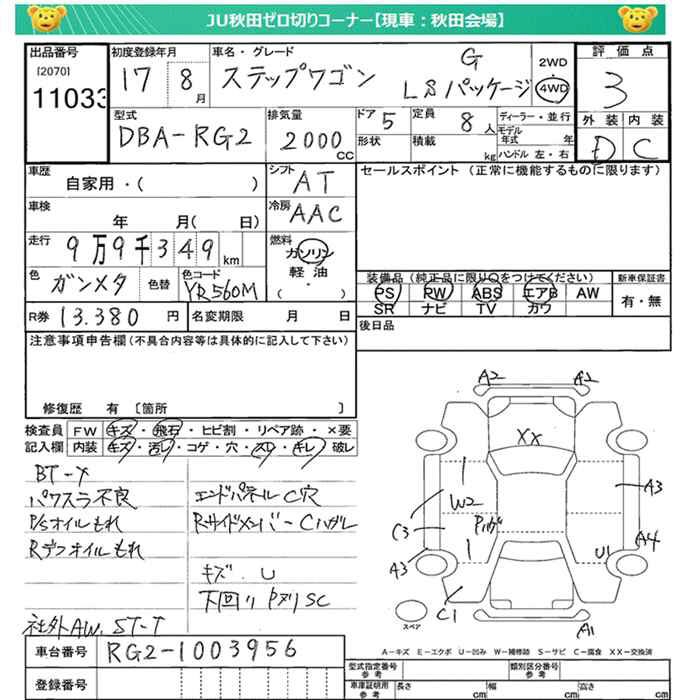 JU秋田ゼロ切りコーナー【現車：秋田会場】
出品番号
[2070]
11033
初度登録年月
17 8月
車名・グレード
ステップワゴン G LSパッケージ
2WD
・
4WD
評価点
3
型式
DBA-RG2
排気量
2000 CC
ドア 5
形状
定員 8人
積載 kg
ディーラー・並行
モデル年式 年
ハンドル 左・右
外装 内装
D C
車歴
自家用・( )
シフト
AT
セールスポイント (正常に機能するものに限ります)
車検
年 月( 日)
冷房
AAC
走行
9万9千349km
燃料
ガソリン
軽油
( ・ )
色
ガンメタ
色替
色コード
YR560M
装備品 (純正品に限り○をつけてください)
新車保証書
PS PW ABS エアB AW
SR ナビ TV カワ
有・無
R券 13.380 円
名変期限 月 日
後日品
注意事項申告欄(不具合内容等は具体的に記入して下さい)
修復歴 有 〔箇所 〕
検査員 FW キズ・飛石・ヒビ割・リペア跡・×要
記入欄 内装 キズ・汚レ・コゲ・穴・スレ・キレ・破レ
BT-×
パワスラ不良
P/sオイルもれ
Rデフオイルもれ
社外AW. ST-T
エンドパネルC穴
RサイドメンバーCハガレ
キズ.U
下回りPヌリSC
A2 A2
XX
W2
A3
C3
Pハガ
A4
A3
U1
C1
A1
スペア
A－キズ E－エクボ U－凹み W－補修跡 S－サビ C－腐食 XX－交換済
車台番号 RG2-1003956
登録番号
型式指定番号 参考
類別区分番号 参考
車庫証明用 参考
長さ cm
幅 cm
高さ cm